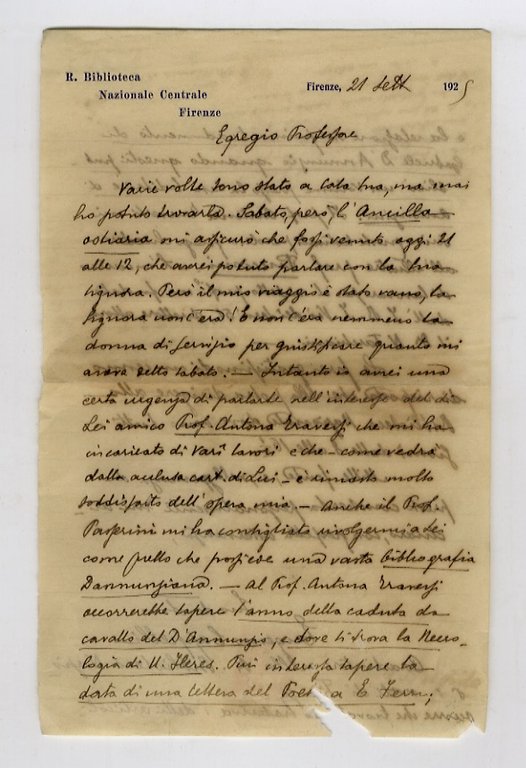 R. Biblioteca
Nazionale Centrale
Firenze
Firenze, 21 Sett 1925
Egregio Professore
Varie volte sono stato a casa sua, ma mai
ho potuto trovarla. Sabato, però, l'Ancilla
ostiaria mi assicurò che fossi venuto oggi 21
alle 12, che avrei potuto parlare con la sua
signora. Però il mio viaggio è stato vano, la
signora non c'era! E non c'era nemmeno la
donna di servizio per giustificare quanto mi
aveva detto sabato. — Intanto io avrei una
certa urgenza di parlarle nell'interesse del di
Lei amico Prof. Antona Traversi che mi ha
incaricato di varî lavori e che - come vedrà
dalla acclusa cart. di Lui - è rimasto molto
soddisfatto dell'opera mia. — Anche il Prof.
Passerini mi ha consigliato rivolgermi a Lei
come quello che possiede una vasta bibliografia
Dannunziana. — Al Prof. Antona Traversi
occorrerebbe sapere l'anno della caduta da
cavallo del D'Annunzio, e dove si trova la Necro-
logia di U. Fleres. Più interessa sapere la
data di una lettera del Poeta a E. Ferri;